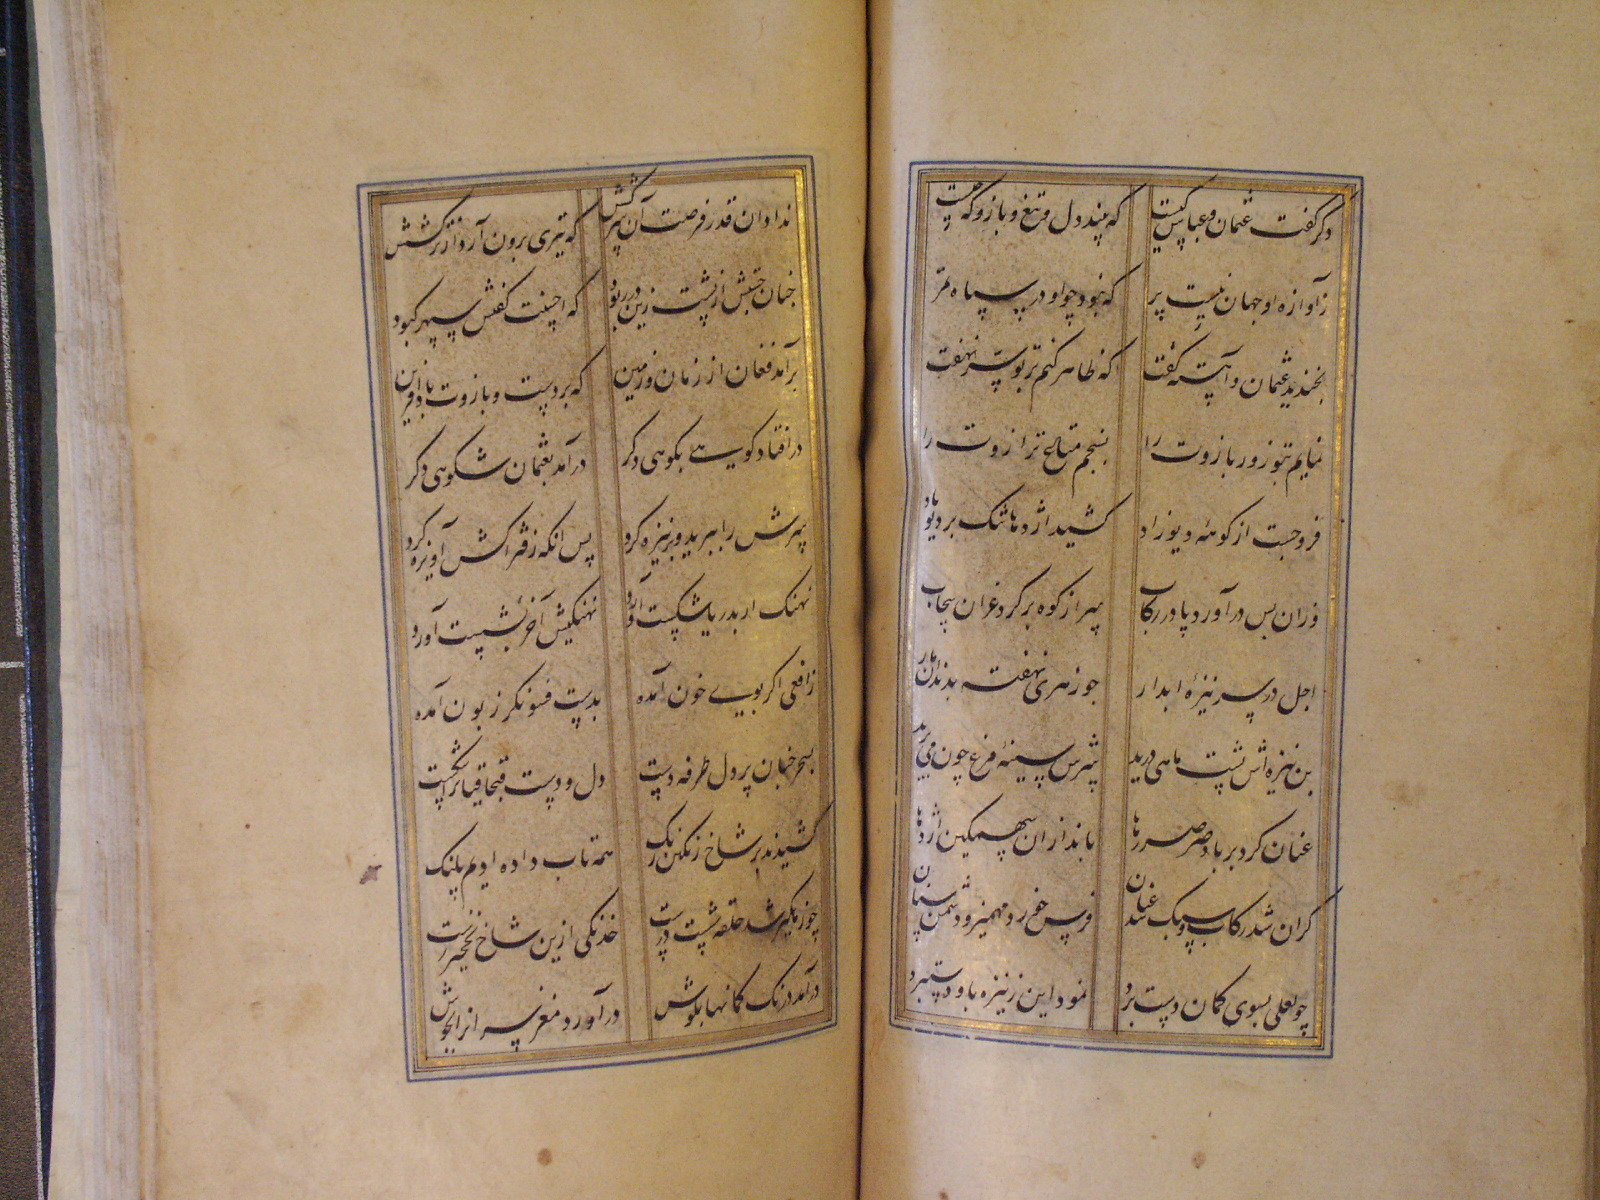 دکر گفت عثمان و عباس کیست که بیند دل و تیغ و بازو که چیست
ز آوازه او جهان نیست پر که نبود چو او در سپاه تمر
بخندید عثمان و آهسته گفت که ظاهر کنم بر تو سر نهفت
نمایم بتو زور بازوت را بسنجم متاع ترازوت را
فروجست از کوهه دیوزاد کشید اژدها تنک بر دیوباد
وزان پس درآورد پا در رکاب سر از کوه برکرد غران سحاب
اجل در سر نیزه ابدار چو زهری نهفته بدندان مار
بن نیزه‌اش پشت ماهی درید سرش سینه مرغ چون می پرید
عنان کرد بر باد صرصر رها بانداز ان سهمکین اژدها
کران شد رکاب و سبک شد عنان فرس خورد مهمیز و دشمن سنان
چو لعلی بسوی کمان دست برد نمود این ز نیزه باو دستبرد
نداد ان قدر فرصت آن سرکشش که تیری برون آرد از ترکشش
چنان جستش از پشت زین در ربود که احسنت گفتش سپهر کبود
برآمد فغان از زمان و زمین که بر دست و بازوت باد آفرین
درافتاد کوهی بکوهی دکر درآمد بعثمان شکوهی دکر
سرش را ببرید و بر نیزه کرد پس انکه ز فتراکش آویزه کرد
نهنک ار بدریا شکست آورد نهنکیش آخر بشست آورد
ز افعی اکر بوی خون آمده بدست فسونکر زبون آمده
دل و دست
کشیدند بر شاخ زنکین رنک همه تاب داده ادیم پلنک
چو زهکیر شد حلقه شست درست خدنکی ازین شاخ نخجیر رست
درآمد زنک کمانها بکوش درآورد مغز سر از